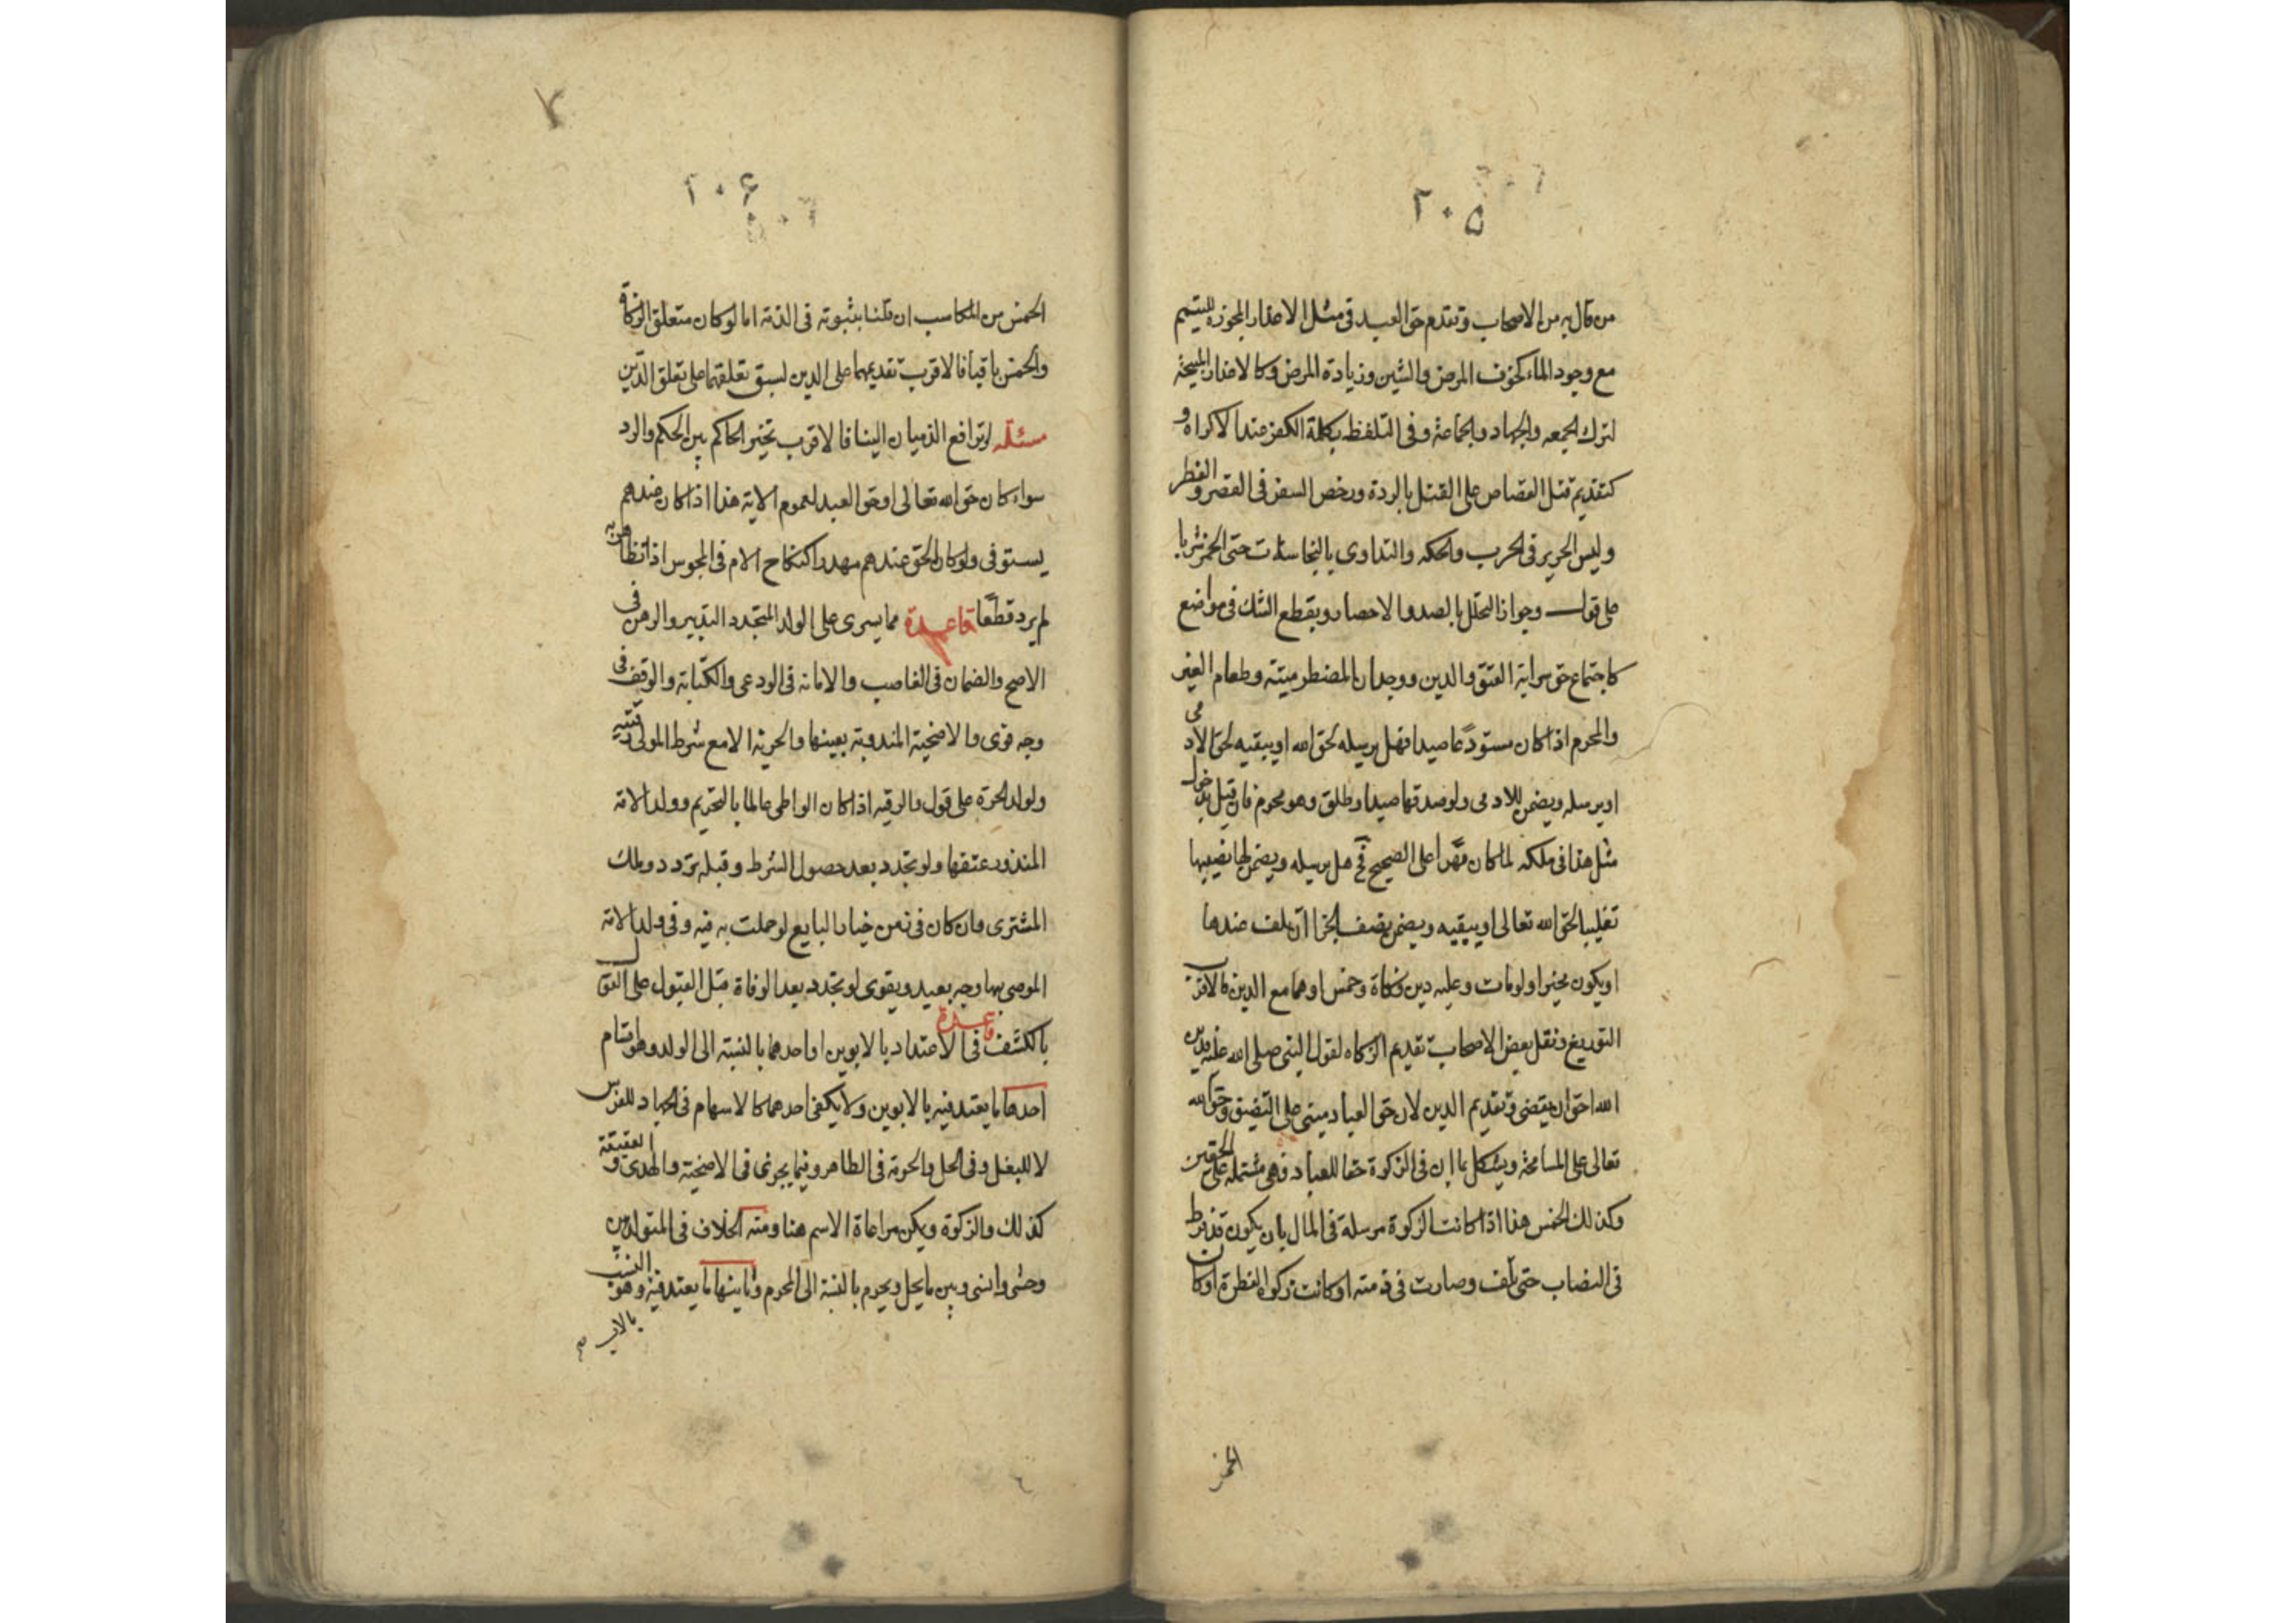 ٢٠٥
من قال به من الاصحاب وتقدم حق العبد فى مثل الاعذار المجوزه للتيمم
مع وجود الماء كخوف المرض والشين وزيادة المرض وكالاعذار المبيحة
لترك الجمعه والجهاد والجماعة وفى التلفظ بكلمة الكفر عند الاكراه و
كتقديم قتل القصاص على القتل بالردة ورخص السفر فى القصر والفطر
ولبس الحرير فى الحرب والحكه والتداوى بالنجاسات حتى الخمر شربا
على قول وجواز التحلل بالصد والاحصار ويقطع الشك فى مواضع
كاجتماع حق سراية العتق والدين ووجدان المضطر ميتة وطعام الغير
والمحرم اذا كان مستودعا صيدا فهل يرسله لحق الله او يبقيه لحق الادمى
او يرسله ويضمن للادمى ولو صدقها صيدا وطلق وهو محرم فان قيل بدخول
مثل هذا فى ملكه لما كان قهرا على الصحيح فح هل يرسله ويضمن لها نصيبها
تغليبا لحق الله تعالى او يبقيه ويضمن نصف الجزا ان تلف عندها
او يكون مخيرا ولو مات وعليه دين وزكاة وخمس او هما مع الدين فالاقرب
التوزيع ونقل بعض الاصحاب تقديم الزكاه لقول النبى صلى الله عليه فدين
الله احق ان يقضى وتقديم الدين لان حق العباد مبنى على التضيق وحق الله
تعالى على المسامحة ويشكل بان فى الزكوة حقا للعباد فهى مشتملة على الحقين
وكذلك الخمس هذا اذا كانت الزكوة مرسلة فى المال بان يكون قد فرط
فى النصاب حتى تلف وصارت فى ذمته او كانت زكوة الفطرة او كان
الخمس
٢٠۶
الخمس من المكاسب ان قلنا بثبوته فى الذمة اما لو كان متعلق الزكاة
والخمس باقيا فالاقرب تقديمهما على الدين لسبق تعلقهما على تعلق الدين
مسئلة لو ترافع الذميان الينا فالاقرب تخير الحاكم بين الحكم والرد
سواء كان حق الله تعالى او حق العبد لعموم الاية هذا اذا كان عندهم
يستوفى ولو كان الحق عندهم مهدرا كنكاح الام فى المجوس اذا تظاهر به
لم يرد قطعا قاعدة مما يسرى على الولد المتجدد التدبير والرهن فى
الاصح والضمان فى الغاصب والامانه فى الودعى والكتابة والوقف فى
وجه قوى والاضحية المندوبة بعينها والحرية الا مع شرط المولى رقيته
ولولد الحرة على قول والرقيه اذا كان الواطى عالما بالتحريم وولد الامة
المنذور عتقها ولو تجدد بعد حصول الشرط وقبله تردد وملك
المشترى وان كان فى زمن خيار البايع لو حملت به فيه وفى ولد الامة
الموصى بها وجه بعيد ويقوى لو تجدد بعد الوفاة قبل القبول على القول
بالكشف قاعدة فى الاعتداد بالابوين او احدهما بالنسبة الى الولد وهو اقسام
احدها ما يعتد فيه بالابوين ولا يكفى احدهما كالاسهام فى الجهاد للفرس
لا للبغل وفى الحل والحرمة فى الظاهر وفيما يجزى فى الاضحية والهدى والعقيقة
كذلك والزكوة ويمكن مراعاة الاسم هنا ومنه الخلاف فى المتولد بين
وحشى وانسى وبين ما يحل ويحرم بالنسبة الى المحرم وثانيها ما يعتد فيه وهو النسب
بالاب